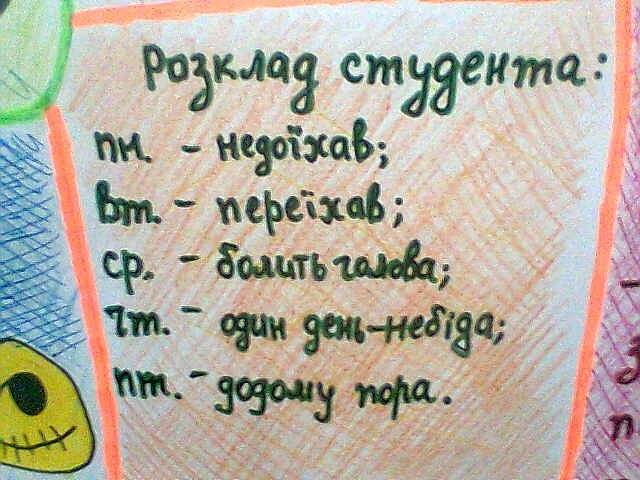 Розклад студента:
пн. - недоїхав;
вт. - переїхав;
ср. - болить голова;
чт. - один день-небіда;
пт. - додому пора.